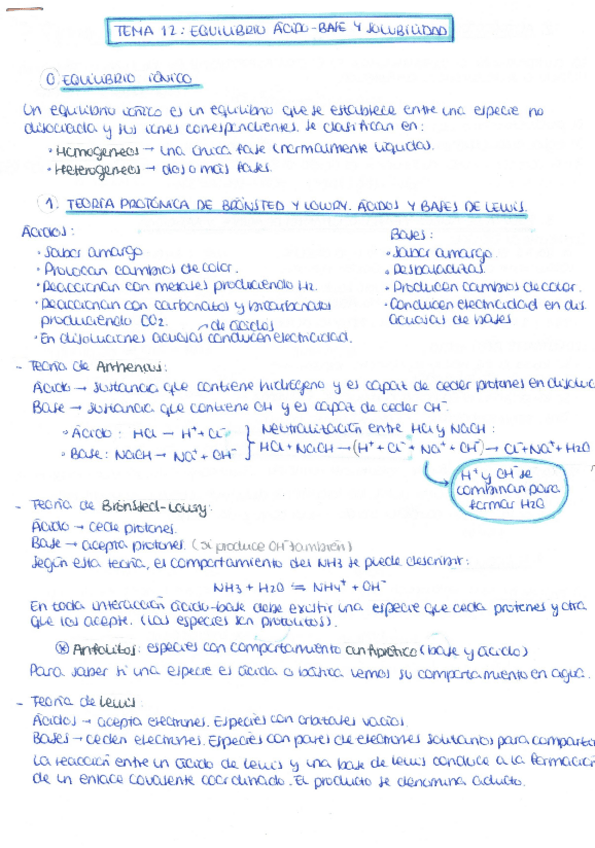 TEMA 12: EQUILIBRIO ÁCIDO-BASE Y SOLUBILIDAD
0. EQUILIBRIO IÓNICO
Un equilibrio iónico es un equilibrio que se establece entre una especie no
disociada y sus iones correspondientes. Se clasifican en:
· Homogéneos → una única fase (normalmente líquidas).
· Heterogéneos → dos o más fases.
1. TEORÍA PROTÓNICA DE BRÖNSTED Y LOWRY. ÁCIDOS Y BASES DE LEWIS.
Ácidos:
· Sabor amargo
· Provocan cambios de color.
· Reaccionan con metales produciendo H2.
· Reaccionan con carbonatos y bicarbonatos
produciendo CO2.
· En disoluciones acuosas de ácidos conducen electricidad.
Bases:
· Sabor amargo.
· Resbaladizas.
· Producen cambios de color.
· Conducen electricidad en dis.
acuosas de bases
- Teoría de Arrhenius:
Ácido → sustancia que contiene hidrógeno y es capaz de ceder protones en disoluc
Base → sustancia que contiene OH y es capaz de ceder OH⁻.
· Ácido: HCl → H⁺ + Cl⁻
· Base: NaOH → Na⁺ + OH⁻
Neutralización entre HCl y NaOH:
HCl + NaOH → (H⁺ + Cl⁻ + Na⁺ + OH⁻) → Cl⁻ + Na⁺ + H2O
H⁺ y OH⁻ se
combinan para
formar H2O
- Teoría de Brönsted-Lowry:
Ácido → cede protones.
Base → acepta protones. (Si produce OH⁻ también)
Según esta teoría, el comportamiento del NH3 se puede describir:
NH3 + H2O ⇋ NH4⁺ + OH⁻
En toda interacción ácido-base debe existir una especie que ceda protones y otra
que los acepte. (Las especies son protolitos).
* Anfolitos: especies con comportamiento anfiprótico (base y ácido)
Para saber si una especie es ácida o básica vemos su comportamiento en agua.
- Teoría de Lewis:
Ácidos → acepta electrones. Especies con orbitales vacíos.
Bases → ceden electrones. Especies con pares de electrones solitarios para compartir
La reacción entre un ácido de Lewis y una base de Lewis conduce a la formación
de un enlace covalente coordinado. El producto se denomina aducto.